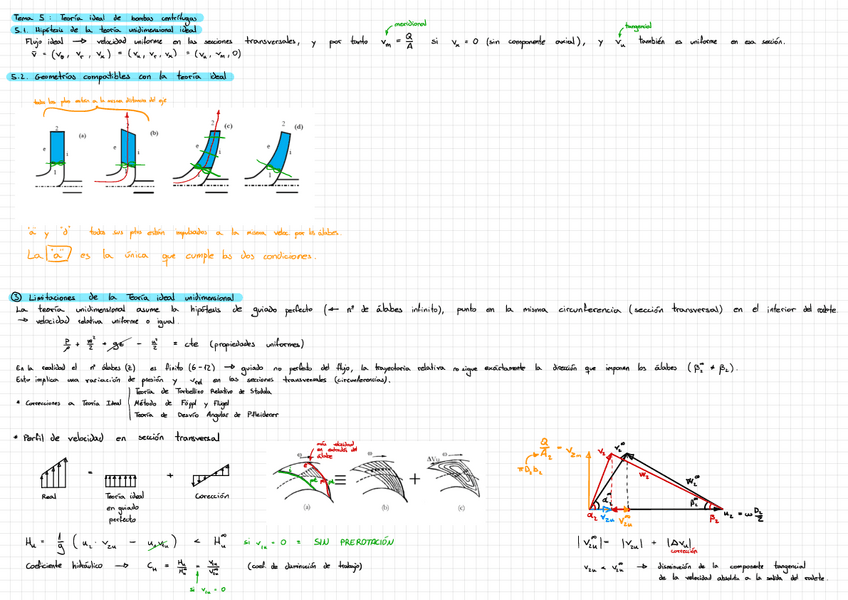 Tema 5: Teoría ideal de bombas centrífugas
5.1. Hipótesis de la teoría unidimensional ideal
meridional
tangencial
Flujo ideal → velocidad uniforme en las secciones transversales, y por tanto vm = Q/A si va = 0 (sin componente axial), y vu también es uniforme en esa sección.
5.2. Geometrías compatibles con la teoría ideal
todos los ptos están a la misma distancia del eje
2 (a) e i 1
2 (b) e i 1
2 (c) e i 1
2 (d) e i 1
"a" y "d" todos sus ptos están impulsados a la misma veloc. por los álabes.
La "a" es la única que cumple las dos condiciones.
③ Limitaciones de la Teoría ideal unidimensional
La teoría unidimensional asume la hipótesis de guiado perfecto (← nº de álabes infinito), punto en la misma circunferencia (sección transversal) en el interior del rodete
→ velocidad relativa uniforme o igual.
= cte (propiedades uniformes)
En la realidad el nº álabes (z) es finito (6-12) → guiado no perfecto del flujo, la trayectoria relativa no sigue exactamente la dirección que imponen los álabes (β₂^∞ ≠ β₂).
Esto implica una variación de presión y vrel en las secciones transversales (circunferencias).
Teoría de Torbellino Relativo de Stodola
* Correcciones a Teoría Ideal Método de Föppl y Flügel
Teoría de Desvío Angular de Pfleiderer
* Perfil de velocidad en sección transversal
más velocidad en extradós del álabe
Real = Teoría ideal en guiado perfecto + Corrección
(a) ≡ (b) + (c)
Q/A₂ = v₂m
πD₂b₂
v₂ v₂^∞ w₂ w₂^∞
α₂ α₂^∞ v₂u v₂u^∞ β₂^∞ β₂ u₂ = ω D₂/2
Hu = 1/g (u₂ · v₂u - u₁v₁u) < Hu^∞ si v₁u = 0 = SIN PREROTACIÓN
|v₂u^∞| = |v₂u| + |Δvu|
corrección
Coeficiente hidráulico → CH = Hu/Hu^∞ = v₂u/v₂u^∞ (coef. de disminución de trabajo)
si v₁u = 0
v₂u < v₂u^∞ → disminución de la componente tangencial
de la velocidad absoluta a la salida del rodete.